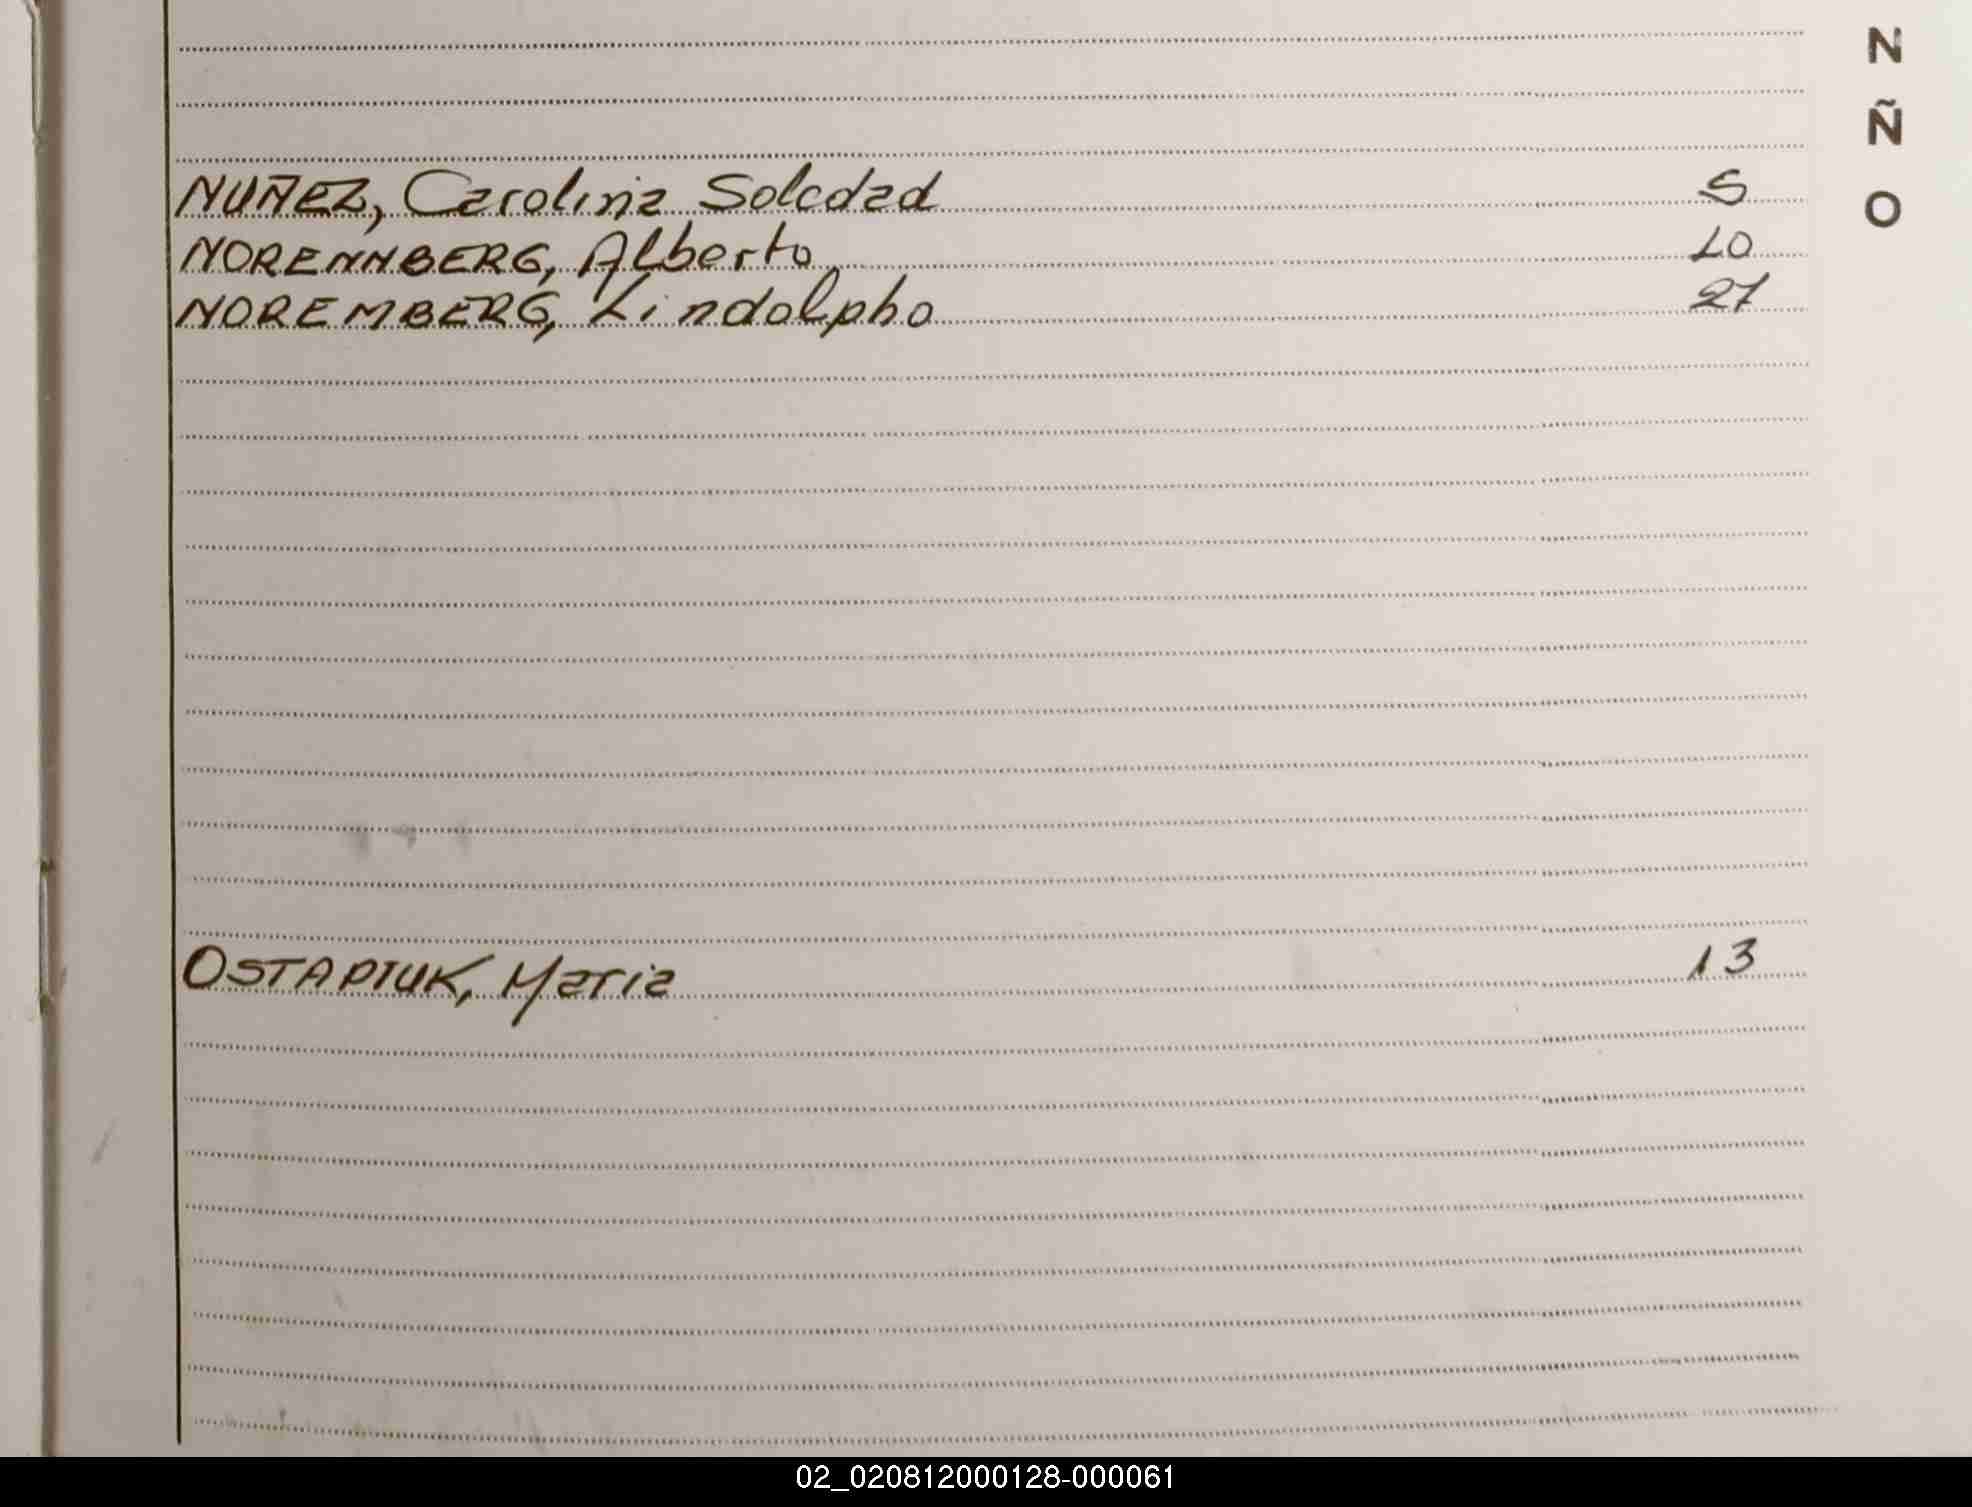 N
Ñ
O
NUÑEZ, Carolina Soledad 5
NORENNBERG, Alberto 10
NOREMBERG, Lindolpho 27
OSTAPIUK, Maria 13
02_020812000128-000061